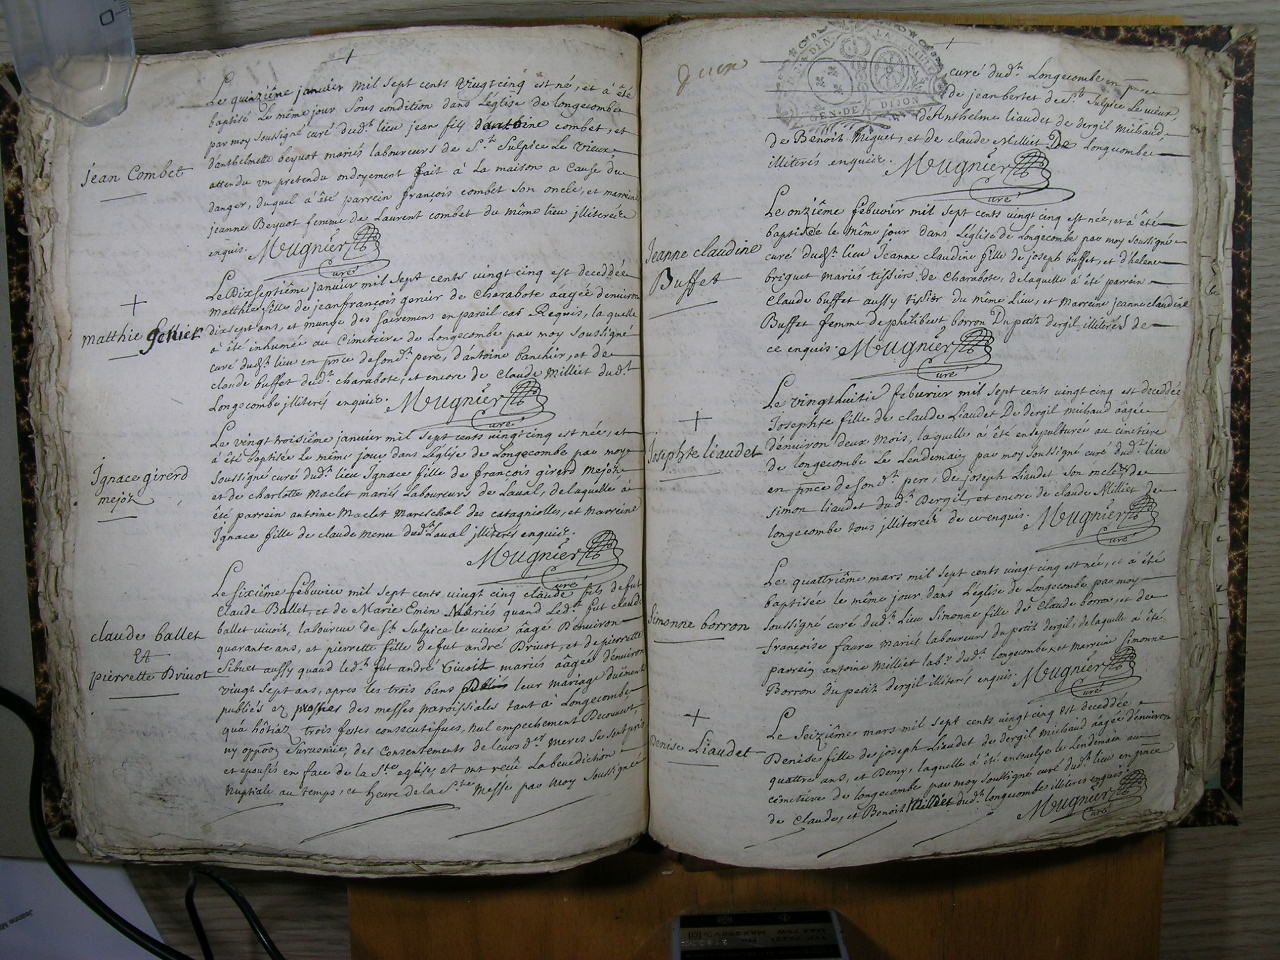 Le quinziême janvier mil sept cents vingt cinq est né, et a été
baptisé Le même jour Sous condition dans Leglise de Longecombe
par moy soussigné curé dud.t lieu jean fils dantoine combet, et
danthelmette beyuot mariés laboureurs de S.t Sulpice Le vieux
attendu un pretendu ondoyement fait à La maison a cause du
danger, duquel a été parrein françois combet son oncle, et marreine
jeanne Beyuot femme de Laurent combet du même lieu illiterés
enquis. Mugnier
curé
jean Combet
Le Dixseptiême janvier mil sept cents vingt cinq est deceddée
matthie fille de jeanfrançois genier de charabote aagée denviron
dixsept ans, et munie des sacremens en pareil cas Requis, laquelle
a été inhumée au Cimetiere de Longecombe par moy soussigné
curé dud.t lieu en pnce de son d.t pere, d'antoine banchin, et de
claude buffet dud.t charabote, et encore de claude Milliet dud.t
Longecombe illiterés enquis. Mugnier
curé
matthie genier
Le vingt troisiême janvier mil sept cents vingt cinq est née, et
a été baptisée Le même jour dans Léglise de Longecombe par moy
soussigné curé dud.t lieu Ignace fille de françois girerd mejoz
et de charlotte Maclet mariés Laboureurs de Laval, de laquelle a
été parrein antoine Maclet mareschal des catagnolles, et marreine
Ignace fille de claude mene dud.t Laval illiterés enquis.
Mugnier
curé
Ignace girerd
mejoz
Le sixiême febuvier mil sept cents vingt cinq claude fils de fut
Claude Ballet, et de Marie Emin Mariés quand Led.t fut claude
ballet vivoit, laboureur de S.t Sulpice le vieux aagé Denviron
quarante ans, et pierrette fille de fut andré Druot, et de pierrette
Sibuet aussy quand led.t fut andré vivoit mariés aagée denviron
vingt sept ans, apres les trois bans de leur mariage duëment
publiés ez prosnes des messes paroissiales tant à Longecombe
qua hôtiaz trois festes consecutives, nul empechement Decouvert
ny opposon survenüe, des Consentements de leurs d.tes meres se sont pris
et epousés en face de la S.te eglise, et ont reçu La benediction
Nuptiale au temps, et heure de la S.te Messe par moy soussigné
claude ballet
Et
pierrette Druot
curé dud.t Longecombe en
de jean bertet de S.t Sulpice Le vieux,
d'Anthelme liaudet de dergil michaud
de Benoît Miguet, et de claude Milliet De Longecombe
illiterés enquis. Mugnier
curé
GEN. DE DIJON
Le onziême febuvier mil sept cents vingt cinq est née, et a été
baptisée le même jour dans Léglise de Longecombe par moy soussigné
curé dud.t lieu Jeanne claudine fille de joseph buffet et d'helene
briguet mariés tissiers de charabote, de laquelle a été parrein
claude buffet aussy tissier du même Lieu, et Marreine jeanne claudine
Buffet femme de philibert borron Du petit dergil illiterés de
ce enquis. Mugnier
curé
Jeanne claudine
Buffet
Le vingthuitiê febuvier mil sept cents vingt cinq est deceddée
Josephte fille de claude Liaudet De dergil michaud aagée
d'environ deux mois, laquelle a été ensepulturée au cimetiere
de longecombe Le Lendemain par moy soussigné curé dud.t lieu
en pnce de son d.t pere, de joseph Liaudet son oncle, de
simon liaudet dud.t dergil, et encore de claude Milliet de
longecombe tous illiterés de ce enquis. Mugnier
curé
Josephte liaudet
Le quattriême mars mil sept cents vingt cinq est née, et a été
baptisée le même jour dans Léglise de Longecombe par moy
soussigné curé dud.t Lieu Simonne fille de Claude borron et de
françoise favre mariés laboureurs du petit dergil, de laquelle a été
parrein antoine Milliet lab.r dud.t longecombe, et marreine Simonne
Borron du petit dergil illiterés enquis. Mugnier
curé
Simonne borron
Le Seiziême mars mil sept cents vingt cinq est deceddée
Denise fille de joseph Liaudet de dergil michaud aagée denviron
quattre ans, et Demy, laquelle a été ensevelye le Lendemain au
cimetiere de longecombe par moy soussigné curé dud.t lieu en pnce
de claude, et Benoît Milliet dud.t longecombe illiterés enquis
Mugnier
curé
Denise Liaudet